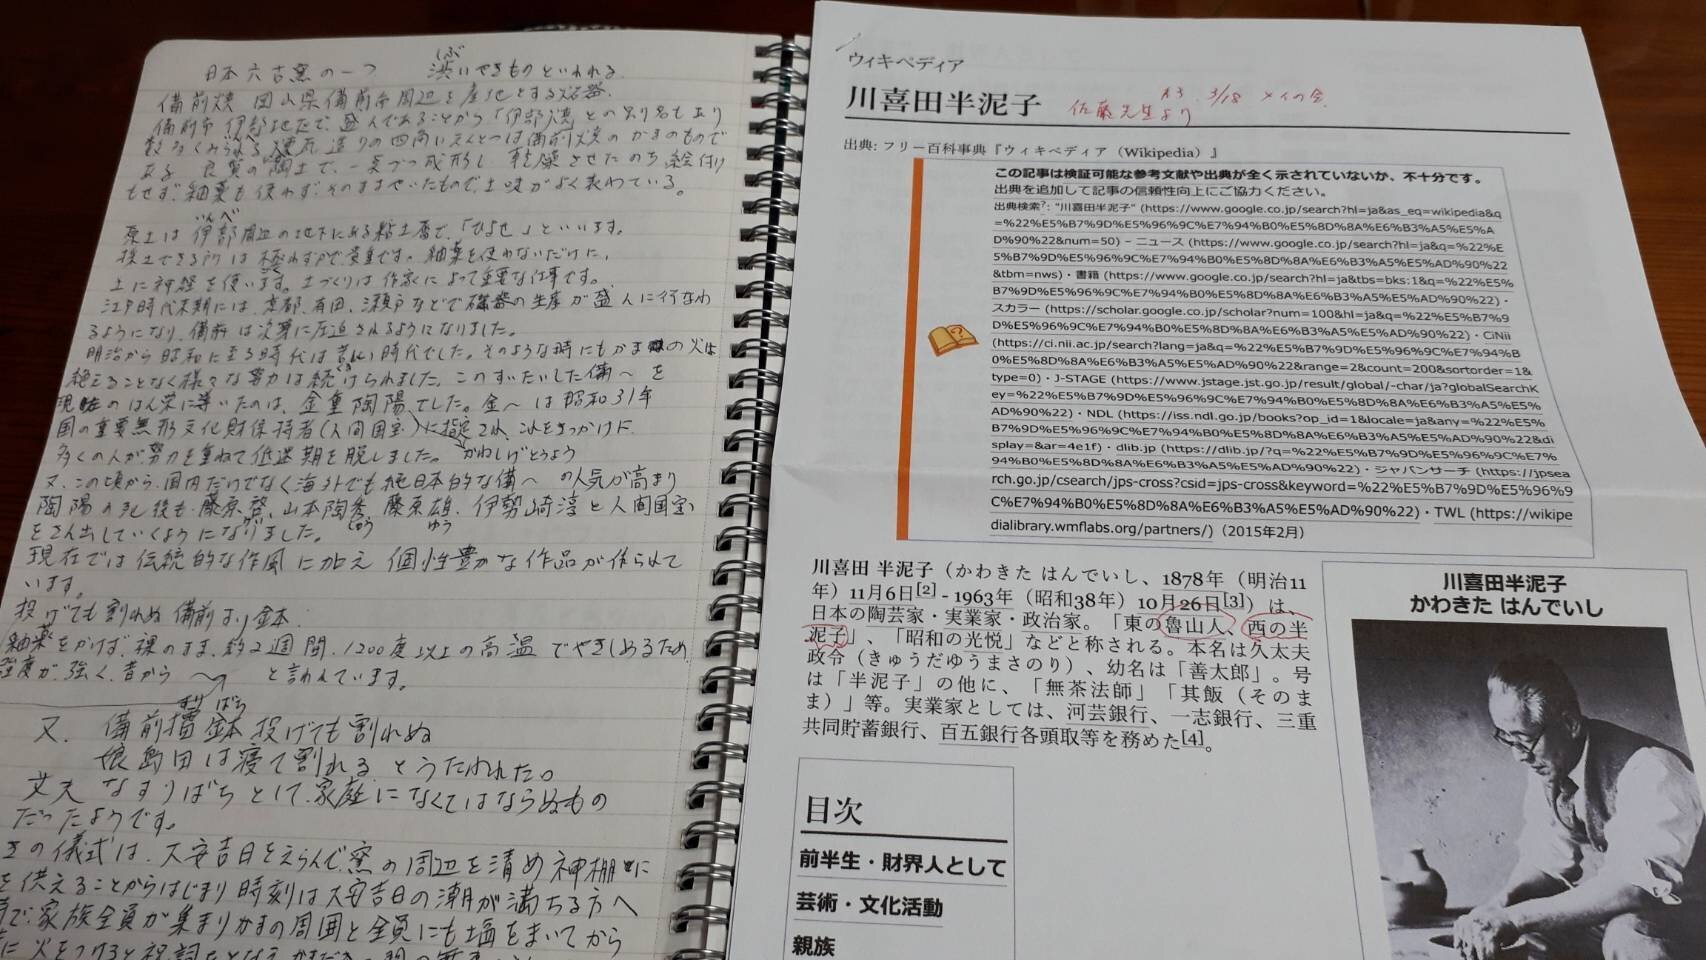 日本六古窯の一つ 渋いやきものといわれる
しぶ
備前焼 岡山県備前市周辺を産地とする炻器
備前市伊部地在で、盛んであることから「伊部焼」との別名もあり
数多くみられる煉瓦造りの四角いえんとつは備前焼のかまのもので
ある 良質の陶土で、一点づつ成形し 乾燥させたのち 絵付け
もせず、釉薬も使わず、そのままやいたもので、土味がよく表わている。
いんべ
原土は伊部周辺の地下にある粘土層で、「ひよせ」といいます。
採土できる所は極わずかで貴重です。釉薬を使わないだけに、
土に神経を使います。土づくりは作家によって重要な仕事です。
江戸時代末期には、京都、有田、瀬戸などで磁器の生産が盛人に行なわ
るようになり、備前は次第に圧迫されるようになりました。
明治から昭和に至る時代は苦しい時代でした。そのような時にもかまの火は
絶えることなく様々な努力は続けられました。このすいたいした備〜を
現在のはん栄に導いたのは、金重陶陽でした。金〜は昭和31年
国の重要無形文化財保持者(人間国宝)に指定され、これをきっかけに
多くの人が努力を重ねて低迷期を脱しました。 かねしげとうよう
又、この頃から、国内だけでなく海外でも純日本的な備〜の人気が高まり
陶陽の死後も、藤原啓、山本陶秀、藤原雄、伊勢崎淳と人間国宝
けい しゅう ゆう
をさん出していくようになりました。
現在では伝統的な作風に加え 個性豊かな作品が作られて
います。
投げても割れぬ 備前すり鉢
釉薬をかけず、裸のまま、約2週間、1200度以上の高温でやきしめるため
強度が強く、昔から 〜 と言われています。
すり ばち
又、備前擂鉢投げても割れぬ
娘島田は寝て割れる とうたわれた。
丈夫なすりばちとして、家庭になくてはならぬもの
だったようです。
の儀式は、大安吉日をえらんで、窯の周辺を清め神棚に
を供えることからはじまり 時刻は大安吉日の潮が満ちる方へ
で、家族全員が集まりかまの周囲と全員にも塩をまいてから
に火をつけると祝詞を
ウィキペディア
川喜田半泥子
佐藤先生より
3/18
出典: フリー百科事典『ウィキペディア（Wikipedia）』
この記事は検証可能な参考文献や出典が全く示されていないか、不十分です。
出典を追加して記事の信頼性向上にご協力ください。
出典検索?: "川喜田半泥子" (https://www.google.co.jp/search?hl=ja&as_eq=wikipedia&q
=%22%E5%B7%9D%E5%96%9C%E7%94%B0%E5%8D%8A%E6%B3%A5%E5%A
D%90%22&num=50) – ニュース (https://www.google.co.jp/search?hl=ja&q=%22%E
5%B7%9D%E5%96%9C%E7%94%B0%E5%8D%8A%E6%B3%A5%E5%AD%90%22
&tbm=nws)・書籍 (https://www.google.co.jp/search?hl=ja&tbs=bks:1&q=%22%E5%
B7%9D%E5%96%9C%E7%94%B0%E5%8D%8A%E6%B3%A5%E5%AD%90%22)・
スカラー (https://scholar.google.co.jp/scholar?num=100&hl=ja&q=%22%E5%B7%9
D%E5%96%9C%E7%94%B0%E5%8D%8A%E6%B3%A5%E5%AD%90%22)・CiNii
(https://ci.nii.ac.jp/search?lang=ja&q=%22%E5%B7%9D%E5%96%9C%E7%94%B
0%E5%8D%8A%E6%B3%A5%E5%AD%90%22&range=2&count=200&sortorder=1&
type=0)・J-STAGE (https://www.jstage.jst.go.jp/result/global/-char/ja?globalSearchK
ey=%22%E5%B7%9D%E5%96%9C%E7%94%B0%E5%8D%8A%E6%B3%A5%E5%
AD%90%22)・NDL (https://iss.ndl.go.jp/books?op_id=1&locale=ja&any=%22%E5%
B7%9D%E5%96%9C%E7%94%B0%E5%8D%8A%E6%B3%A5%E5%AD%90%22&di
splay=&ar=4e1f)・dlib.jp (https://dlib.jp/?q=%22%E5%B7%9D%E5%96%9C%E7%
94%B0%E5%8D%8A%E6%B3%A5%E5%AD%90%22)・ジャパンサーチ (https://jpsea
rch.go.jp/csearch/jps-cross?csid=jps-cross&keyword=%22%E5%B7%9D%E5%96%9
C%E7%94%B0%E5%8D%8A%E6%B3%A5%E5%AD%90%22)・TWL (https://wikipe
dialibrary.wmflabs.org/partners/)（2015年2月）
川喜田 半泥子（かわきた はんでいし、1878年（明治11
年）11月6日[2] - 1963年（昭和38年）10月26日[3]）は、
日本の陶芸家・実業家・政治家。「東の魯山人、西の半
泥子」、「昭和の光悦」などと称される。本名は久太夫
政令（きゅうだゆうまさのり）、幼名は「善太郎」。号
は「半泥子」の他に、「無茶法師」「其飯（そのま
ま）」等。実業家としては、河芸銀行、一志銀行、三重
共同貯蓄銀行、百五銀行各頭取等を務めた[4]。
川喜田半泥子
かわきた はんでいし
目次
前半生・財界人として
芸術・文化活動
親族